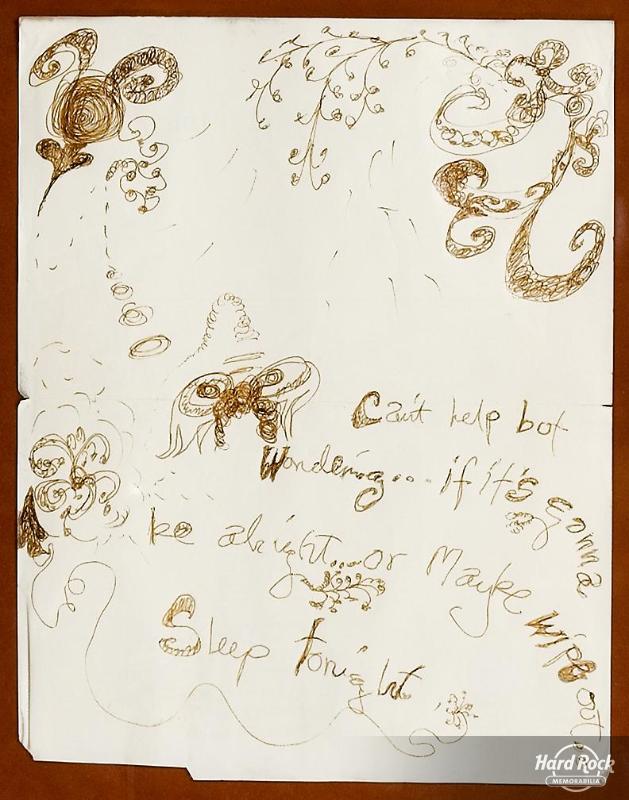 Can't help bot
Wondering... if it's gonna
be alright....or Maybe wipe out.
Sleep tonight
Hard Rock
MEMORABILIA